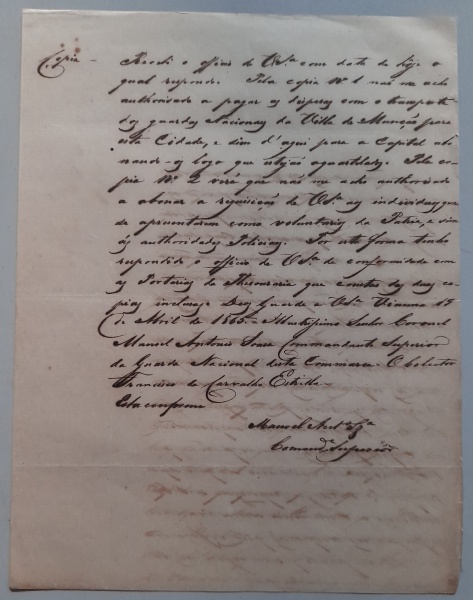 Copia Recebi o officio de V.Sª com data de hoje o
qual respondo. Pela copia Nº 1 não me acho
authorisado a pagar as despesas com o transporte
dos guardas Nacionaes da Villa de Monção para
esta Cidade, e dim d'aqui para a Capital abo
nando-os logo que estejão aquartelados. Pela co
pia Nº 2 verá que não me acho authorisado
a abonar a requisição de V.Sª aos individuos, que
se apresentarem como voluntarios da Patria, e sim
ás authoridades Policiaes. Por esta forma tenho
respondido o officio de V.Sª de conformidade com
as Portarias da Thesouraria que constão das duas co
pias inclusas. Deos Guarde a V.Sª Vianna 15
de Abril de 1865. Illustrissimo Senhor Coronel
Manoel Antonio Commandante Superior
da Guarda Nacional desta Commarca. O Collector
Francisco de Carvalho Estrella.
Esta conforme
Manoel Antº
Comandᵉ Superior